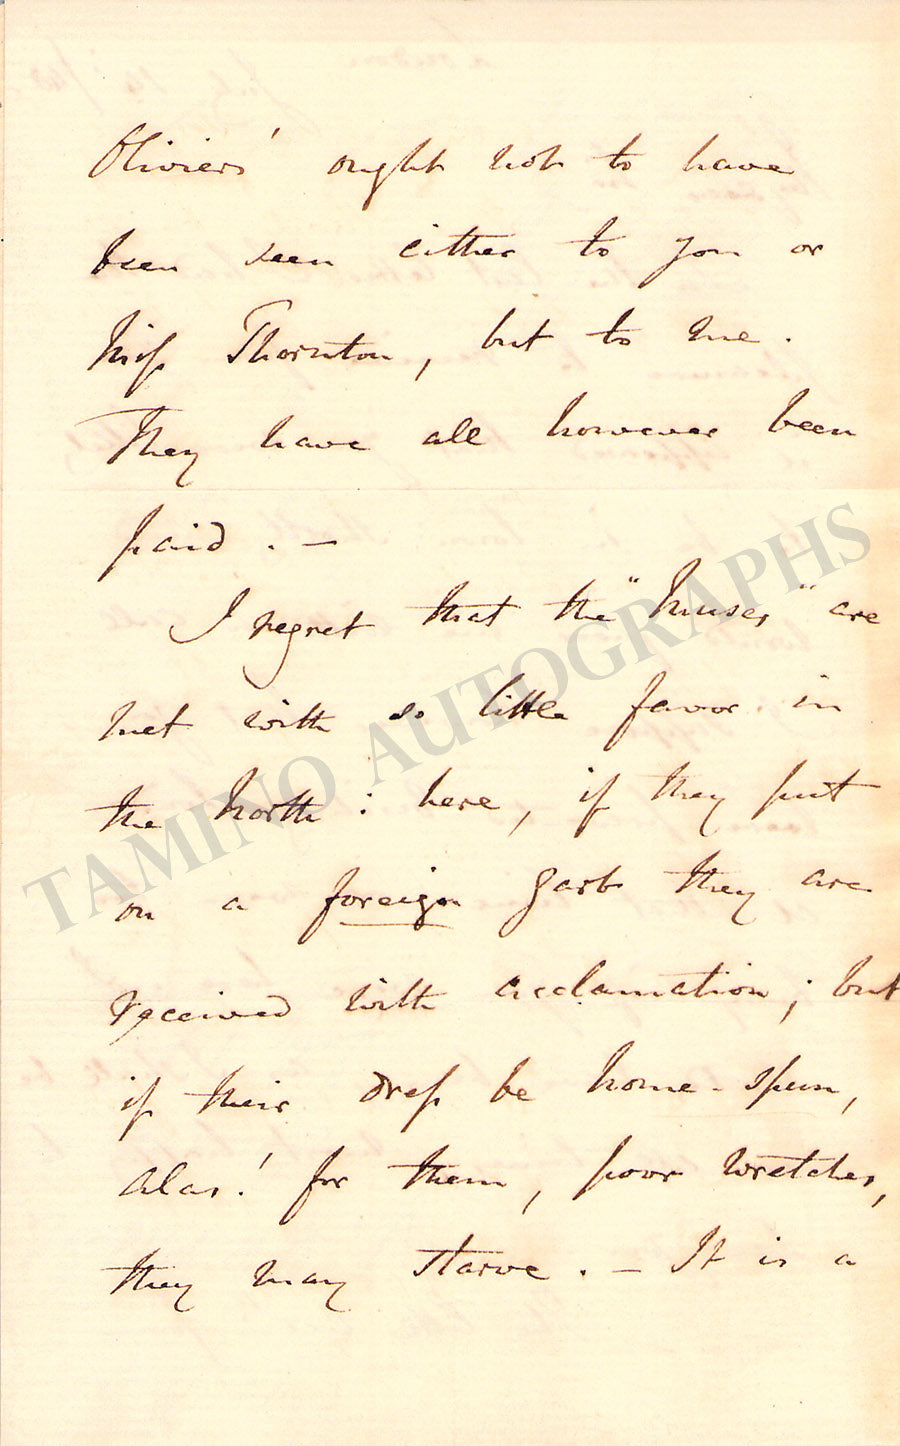 Oliviers' ought not to have
been seen either to you or
Miss Thornton, but to me.
They have all however been
paid. —
I regret that the "Muses" are
met with so little favor in
the North: here, if they put
on a foreign garb they are
received with acclamation; but
if their dress be home-spun,
alas! for them, poor wretches,
they may starve. — It is a
TAMINO AUTOGRAPHS